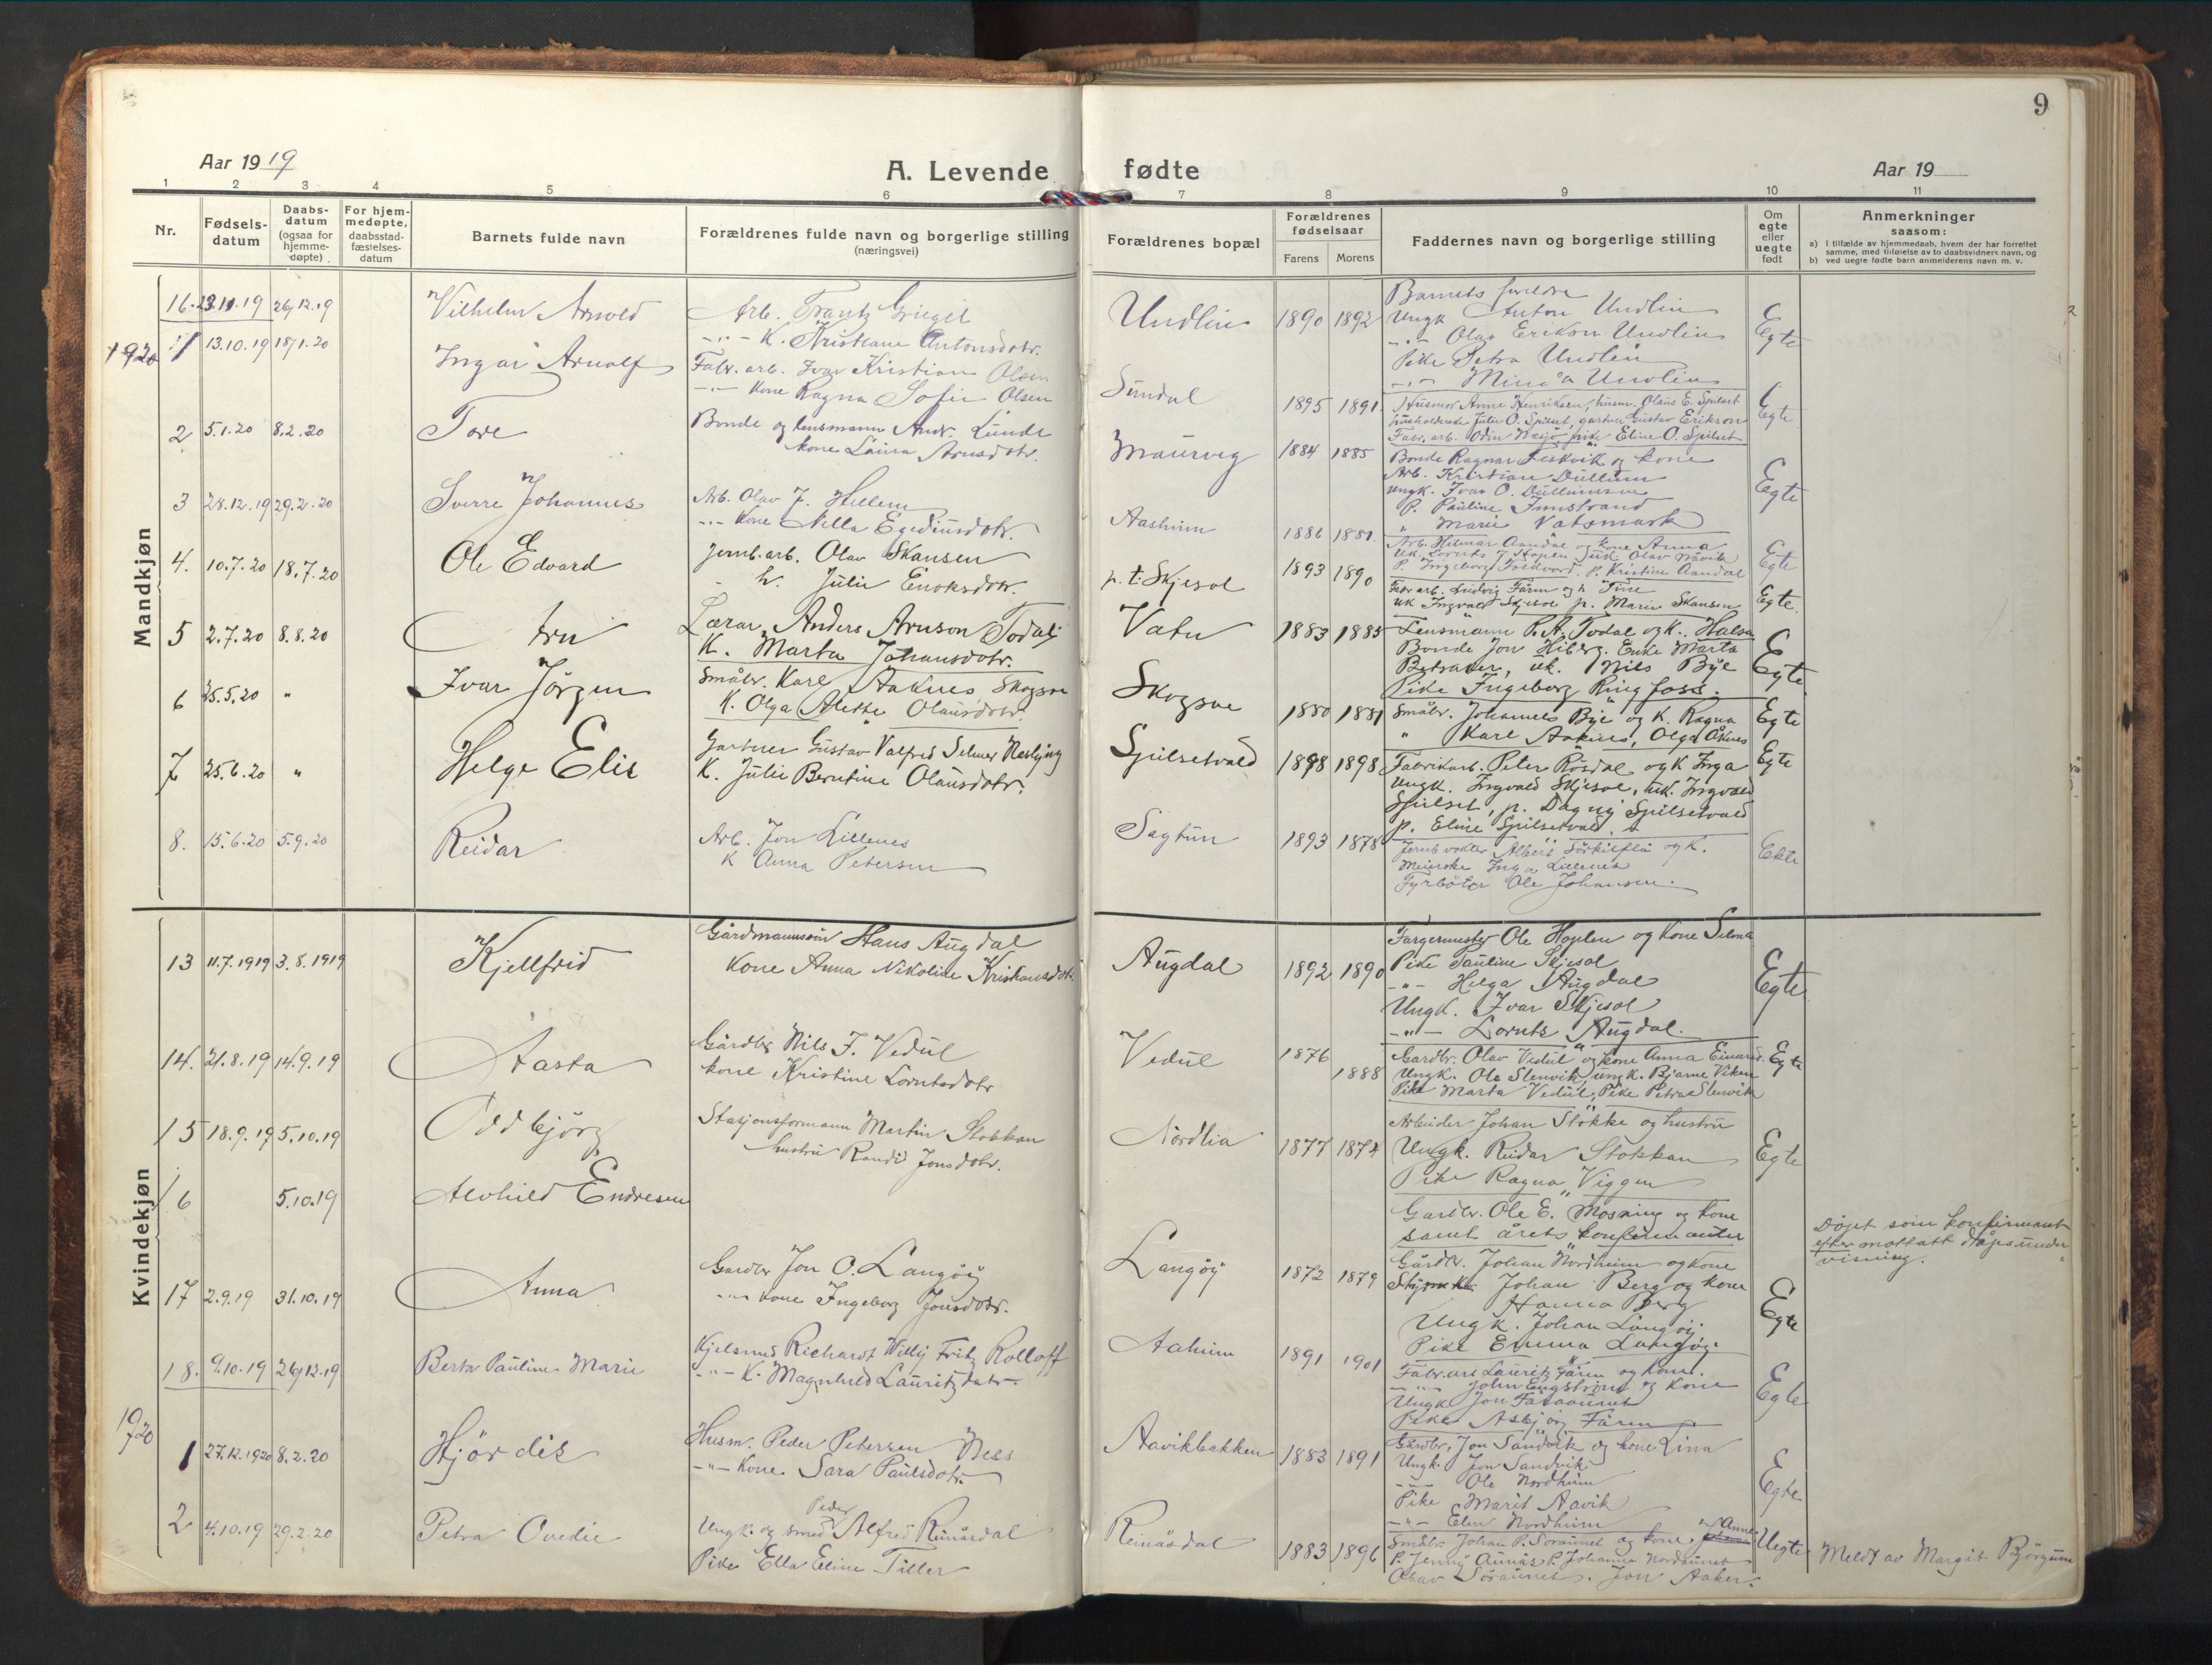 9
Aar 1919
A. Levende fødte
Aar 19
1 2 3 4 5 6 7 8 9 10 11
Nr.
Fødsels-
datum
Daabs-
datum
(ogsaa for
hjemme-
døpte)
For hjem-
medøpte,
daabsstad-
fæstelses-
datum
Barnets fulde navn
Forældrenes fulde navn og borgerlige stilling
(næringsvei)
Forældrenes bopæl
Forældrenes
fødselsaar
Farens Morens
Faddernes navn og borgerlige stilling
Om
egte
eller
uegte
født
Anmerkninger
saasom:
a) i tilfælde av hjemmedaab, hvem der har forrettet
samme, med tilføielse av to daabsvidners navn, og
b) ved uegte fødte barn anmelderens navn m. v.
Mandkjøn
16. 23.11.19 26/12.19 Vilhelm Arnold
Arb. Frantz Griegel
-"- K. Kristiane Antonsdotr.
Undlin 1890 1892
Barnets foreldre
Ungk Anton Undlin
-"- Olav Erikson Undlin
Pike Petra Undlin
-"- Minda Undlin
Egte
1920 1 13.10.19 18/1.20 Ingar Arnolf
Fabr. arb. Ivar Kristian Olsen
-"- Kone Ragna Sofie Olsen
Sundal 1895 1891.
Husmor Anne Henriksen, husm. Olaus E. Spilset
husholderske Julie O. Spilset, gartner Gustav Erikson
Fabr. arb. Odin pike Eline O. Spilset
Egte
2 5.1.20 8.2.20 Tore
Bonde og lensmann Andr. Lunde
kone Laura Arnsdotr.
Maurveg 1884 1885
Bonde Ragnar Fiskvik og kone
Arb. Kristian Dullum
Ungk. Ivar O. Dullumsve
P. Pauline Innstrand
" Marie Vatsmark
Egte
3 28.12.19 29.2.20 Sverre Johannes
Arb. Olav J. Hellem
-"- Kone Nella Egediusdotr.
Aasheim 1886 1881.
Arb. Hilmar Aandal og kone Anna
Uk. Lornts J. Hoplen, uk Olav Nævik
P. Ingeborg Folkvord. P. Kristine Aandal
Egte
4. 10.7.20 18.7.20 Ole Edvard
Jernb. arb. Olav Skansen
h. Julie Enoksdotr.
p.t. Skjesol 1893 1890
Fabr arb. Ludvig Færen og h Tine
uk Ingvald Skjesol p. Marie Skansen
Egte.
5 2.7.20 8.8.20 Arn
Lærar, Anders Arnson Todal
K. Marta Johansdotr.
Vatn 1883 1885
Lensmann P. A. Todal og k. Halsa
Bonde Jon Hiberg. Enke Marta
uk. Nils Bye
Pike Ingeborg Ringfoss.
Egte
6 25.5.20 " Ivar Jörgen
Småbr. Karl Aaknes Skogsve
K. Olga Alette Olausdotr.
Skogsve 1880 1881
Småbr. Johannes Bye og K. Ragna
" Karl Aaknes, Olga Åknes
Egte
7 25.6.20 " Helge Elis
Gartner Gustav Valfred Selmer
K. Julie Berntine Olausdotr.
Spilsetvald 1898 1898
Fabrikarb. Peter Rösdal og K Inga
Ungk. Ingvald Skjesol, uk. Ingvald
Spilset, p. Dagny Spilsetvald
p. Eline Spilsetvald.
Egte
8. 15.6.20 5.9.20 Reidar
Arb. Jon Lillenes
K Anna Petersen
Sagtun 1893 1878
Jernb vokter Albert og k.
Meierske Inga Lillenes
Fyrböter Ole Johansen.
Ekte
Kvindekjøn
13 11.7.1919 3.8.1919 Kjellfrid
Gårdmannssön Hans Augdal
Kone Anna Nikoline Kristiansdotr.
Augdal 1892 1890
Fargermester Ole Hoplen og kone Selma
Pike Pauline Skjesol
-"- Helga Augdal
Ungk. Ivar Skjesol
-"- Lornts Augdal.
Egte
14. 21.8.19 14.9.19 Aasta
Gårdbr Nils J. Vedul
kone Kristine Lorntsdotr
Vedul 1876 1888
Gardbr. Olav Vedul og kone Anna
Ungk. Ola Stenvik, ungk. Bjarne Viken
Pike Marta Vedul, Pike Petra Stenvik
Egte
15 18.9.19 5.10.19 Oddbjörg
Stasjonsformann Martin Stokkan
hustru Randi Jonsdotr.
Nordlia 1877 1874
Arbeider Johan Stokke og hustru
Ungk. Reidar Stokkan
Pike Ragna Viggen
Egte
16 5.10.19 Alvhild Endresen
Gardbr. Ole E. Mosning og kone
samt årets konfirmanter
Döpt som konfirmant
efter mottatt dåpsunder
visning.
17 2.9.19 31.10.19 Anna
Gardbr Jon O. Langöy
-"- kone Ingeborg Jonsdotr.
Langöy 1872 1879
Gårdbr. Johan Nordheim og kone
Johan Berg og kone
Hanna Berg
Ungk. Johan Langöy
Pike Emma Langöy
Egte
18. 9.10.19 26/12.19 Berta Pauline Marie
Kjelsmed Richardt Willy Fritz Rolloff
-"- K. Magnhild Lauritzdatr.
Aaheim 1891 1901
Fabr.arb Lauritz Færen og kone.
-"- John Engström og kone
Ungk Jon
Pike Asbjörg Færen
Egte
1920
1 27.12.1920 8.2.20 Hjördis
Husm. Peder Petersen Ness
-"- Kone. Sara Paulsdotr.
Aavikbakken 1883 1891
Gårdbr. Jon Sandvik og kone Lina
Ungk. Jon Sandvik
-"- Ole Nordheim
Pike Marit Aavik
-"- Elen Nordheim
Egte
2 4.10.19 29.2.20 Petra Ovedie
Peder
Ungk. og smed Alfred Reinåsdal
Pike Ella Eline Tiller
Reinåsdal 1883 1896
Anne
Småbr Johan P. Soraunet og kone
P. Jenny Aunås P. Johanna Nordaunet
Olav Soraunet. Jon Aaker.
Uegte
Meldt av Margit Björgum